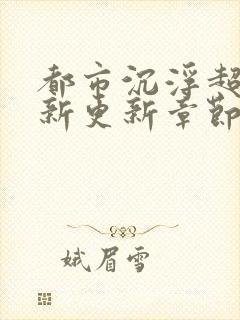 都市沉浮超
新更新章节
娥眉雪